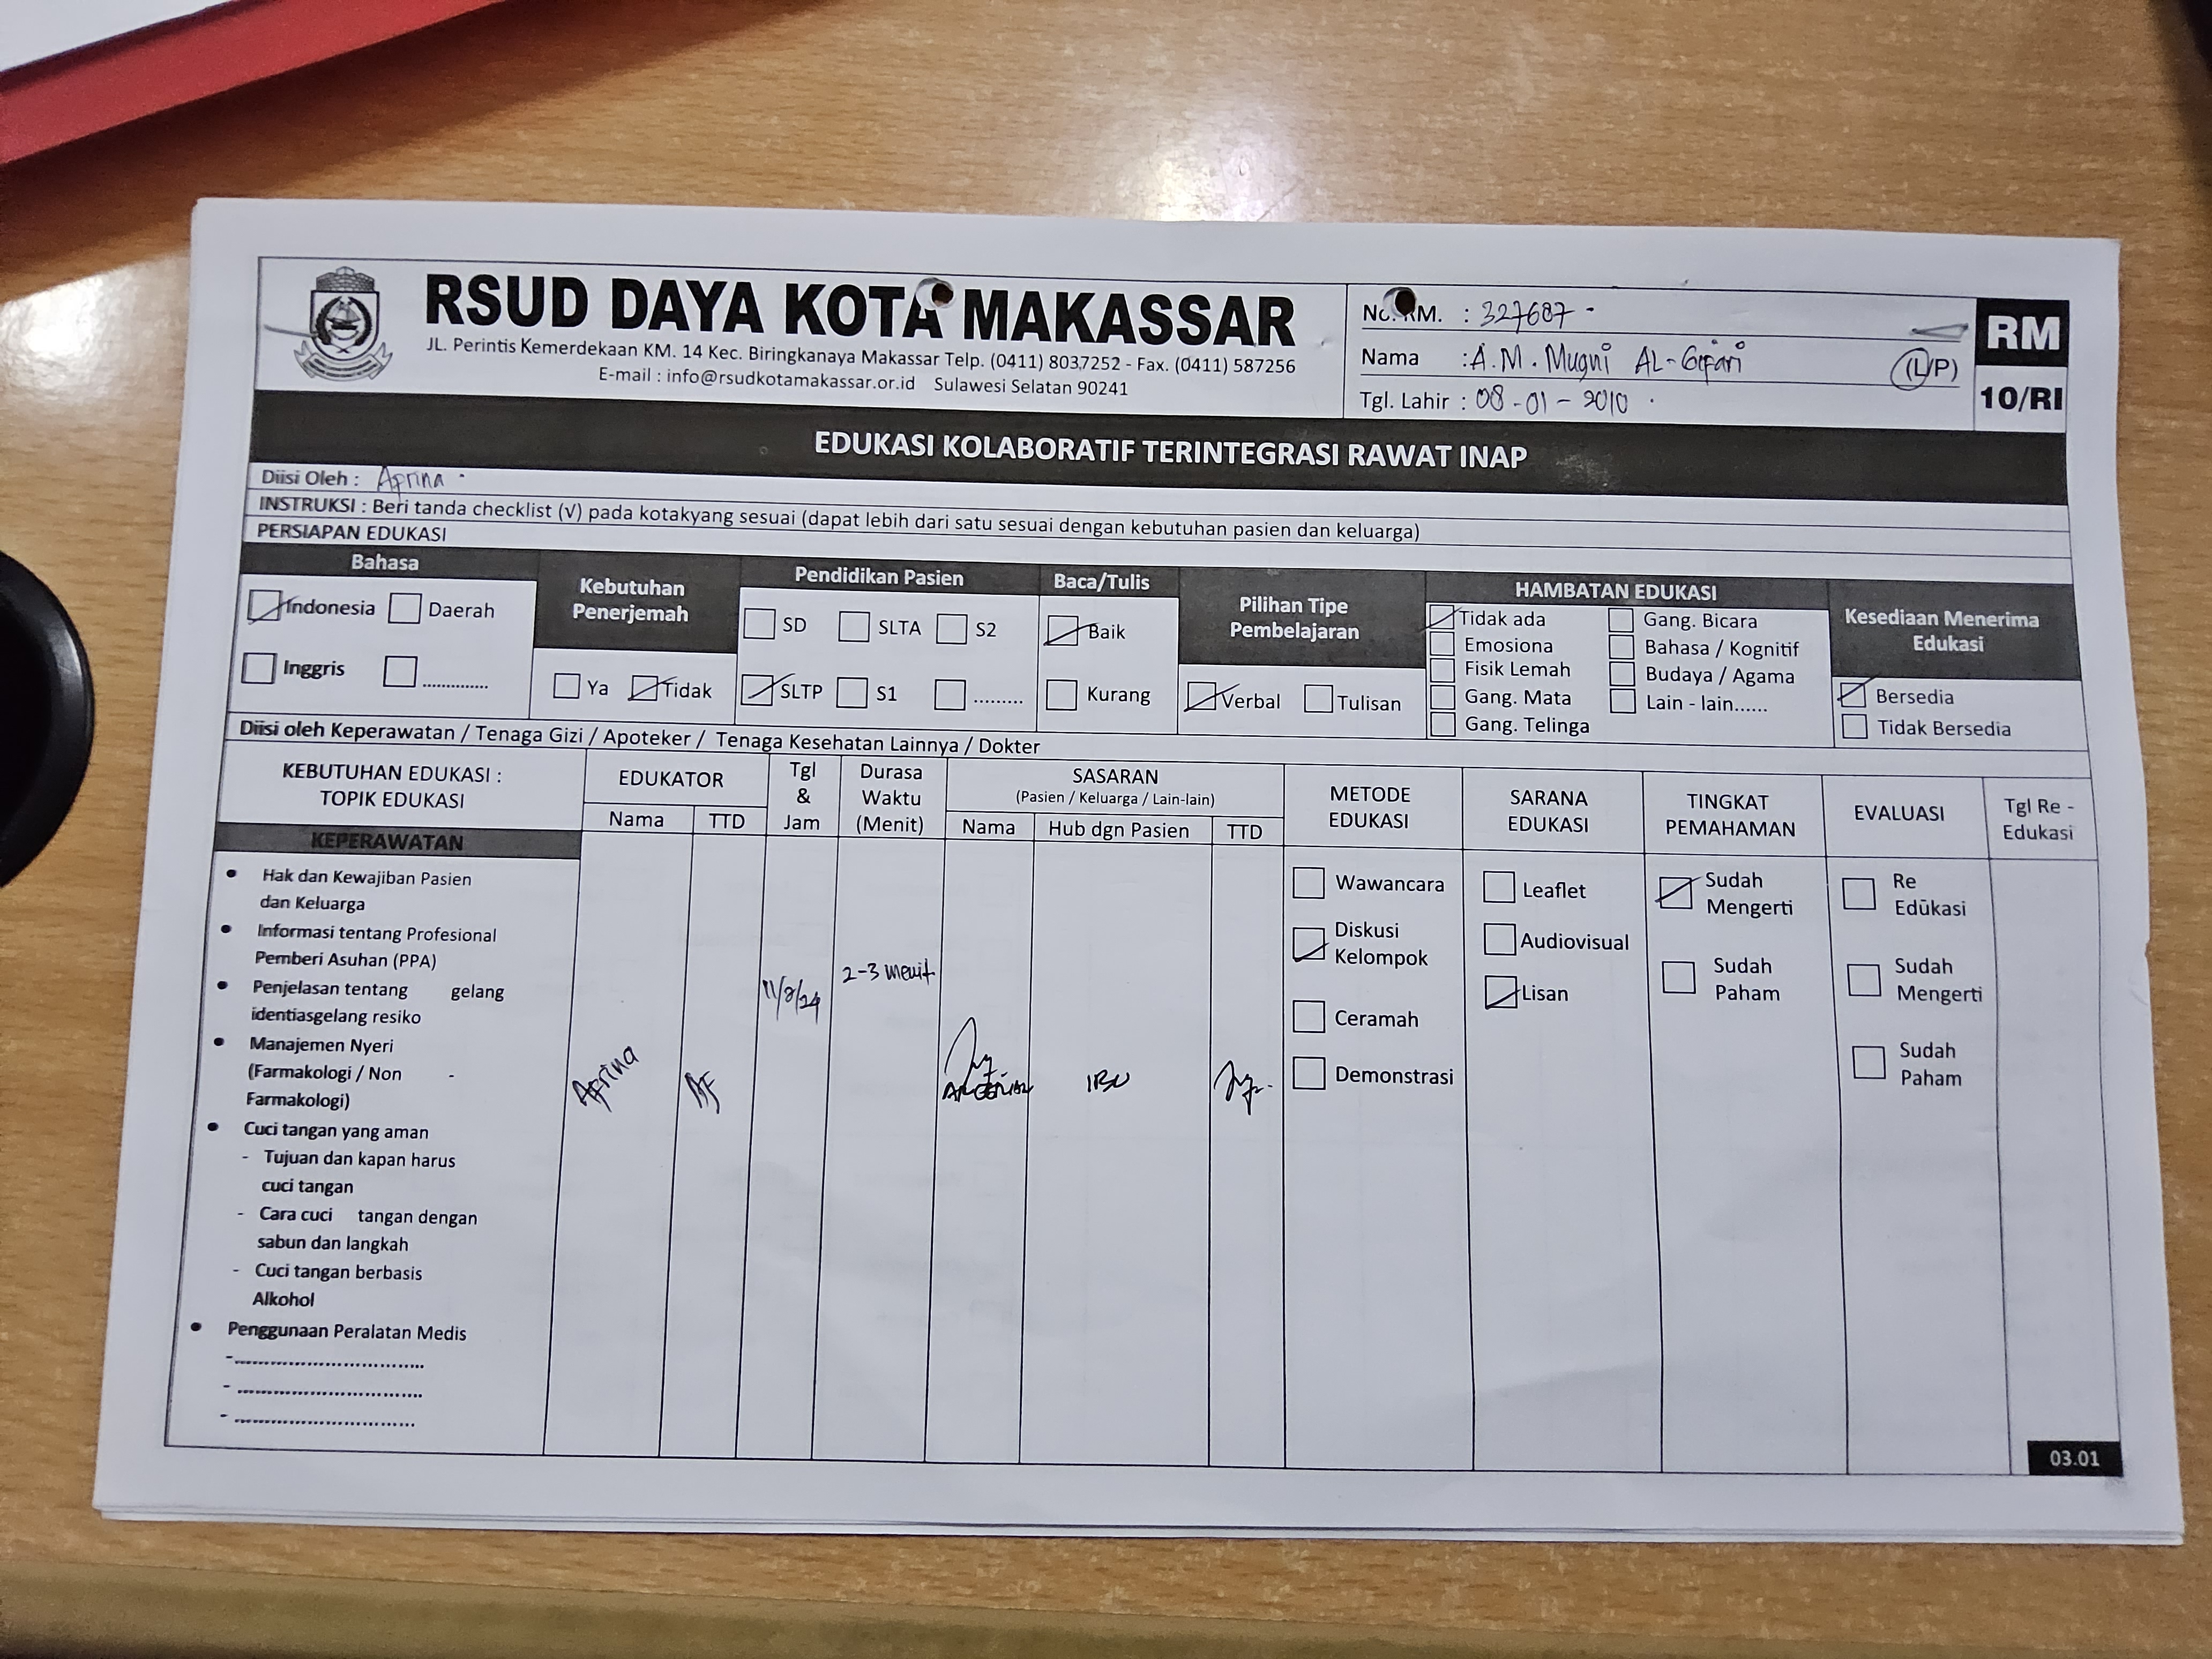 RSUD DAYA KOTA MAKASSAR
JL. Perintis Kemerdekaan KM. 14 Kec. Biringkanaya Makassar Telp. (0411) 8037252 - Fax. (0411) 587256
E-mail : info@rsudkotamakassar.or.id Sulawesi Selatan 90241
No. RM. : 327687
Nama : A.M. Mugni AL-Gifari (L/P)
Tgl. Lahir : 08-01-2010
RM
10/RI
EDUKASI KOLABORATIF TERINTEGRASI RAWAT INAP
Diisi Oleh : Aprina
INSTRUKSI : Beri tanda checklist (√) pada kotakyang sesuai (dapat lebih dari satu sesuai dengan kebutuhan pasien dan keluarga)
PERSIAPAN EDUKASI
Bahasa
Indonesia Daerah
Inggris ..............
Kebutuhan
Penerjemah
Ya Tidak
Pendidikan Pasien
SD SLTA S2
SLTP S1 .........
Baca/Tulis
Baik
Kurang
Pilihan Tipe
Pembelajaran
Verbal Tulisan
HAMBATAN EDUKASI
Tidak ada Gang. Bicara
Emosiona Bahasa / Kognitif
Fisik Lemah Budaya / Agama
Gang. Mata Lain - lain......
Gang. Telinga
Kesediaan Menerima
Edukasi
Bersedia
Tidak Bersedia
Diisi oleh Keperawatan / Tenaga Gizi / Apoteker / Tenaga Kesehatan Lainnya / Dokter
KEBUTUHAN EDUKASI :
TOPIK EDUKASI
EDUKATOR
Nama TTD
Tgl
&
Jam
Durasa
Waktu
(Menit)
SASARAN
(Pasien / Keluarga / Lain-lain)
Nama Hub dgn Pasien TTD
METODE
EDUKASI
SARANA
EDUKASI
TINGKAT
PEMAHAMAN
EVALUASI
Tgl Re -
Edukasi
KEPERAWATAN
• Hak dan Kewajiban Pasien
dan Keluarga
• Informasi tentang Profesional
Pemberi Asuhan (PPA)
• Penjelasan tentang gelang
identiasgelang resiko
• Manajemen Nyeri
(Farmakologi / Non -
Farmakologi)
• Cuci tangan yang aman
- Tujuan dan kapan harus
cuci tangan
- Cara cuci tangan dengan
sabun dan langkah
- Cuci tangan berbasis
Alkohol
• Penggunaan Peralatan Medis
- ................................
- ...............................
- ..............................
Aprina
11/8/24
2-3 menit
IBU
Wawancara
Diskusi
Kelompok
Ceramah
Demonstrasi
Leaflet
Audiovisual
Lisan
Sudah
Mengerti
Sudah
Paham
Re
Edukasi
Sudah
Mengerti
Sudah
Paham
03.01